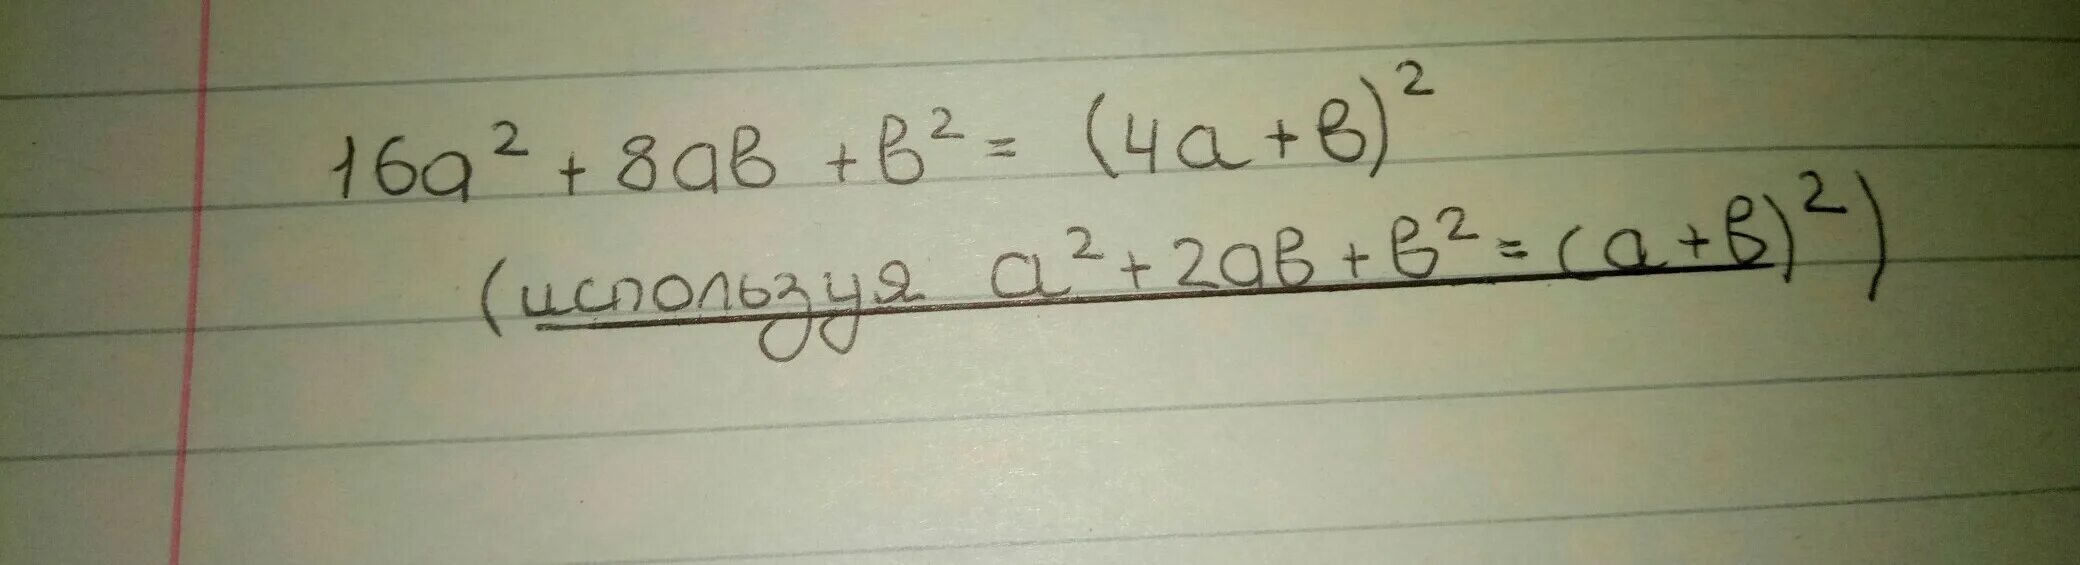 16a² + 8ab + b² = (4a + b)²
(используя a² + 2ab + b² = (a + b)²)